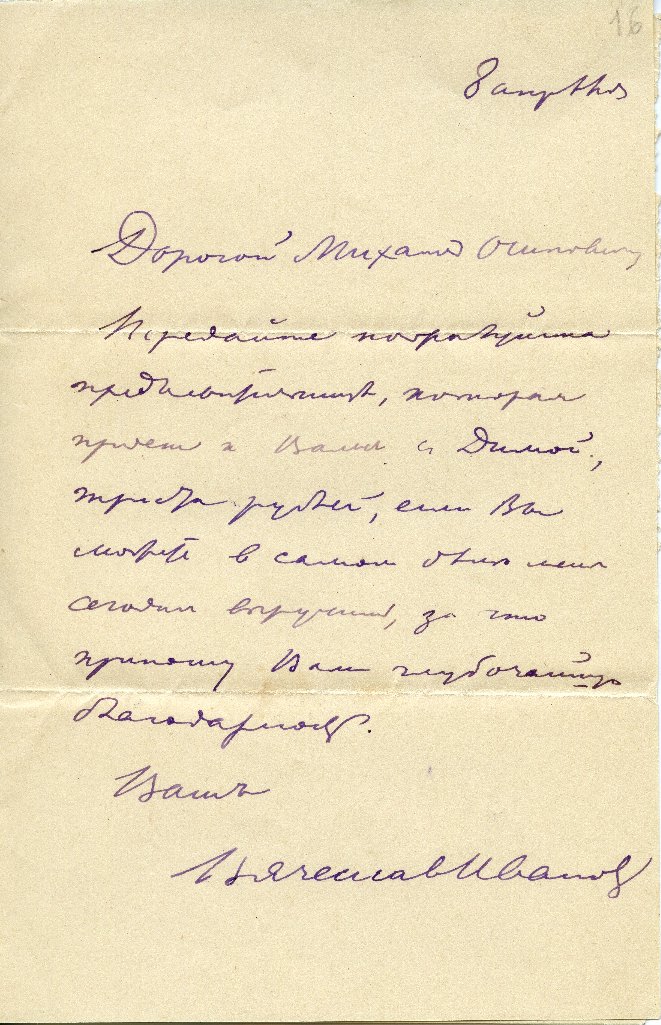 16
8 апрѣля
Дорогой Михаил Осипович,
Передайте пожалуйста
предъявительницѣ, которая
придет к Вам с Димой,
триста рублей, если Вы
можете в самом дѣлѣ меня
сегодня выручить, за что
приношу Вам глубочайшую
благодарность.
Вашъ
Вячеслав Иванов